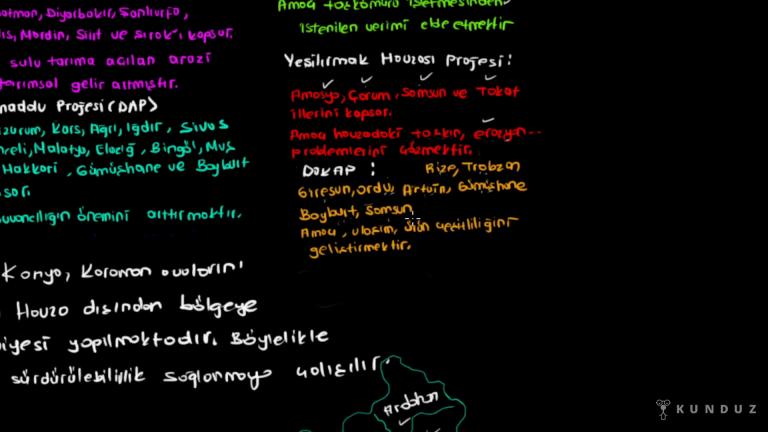 Batman, Diyarbakır, Şanlıurfa,
Mardin, Siirt ve Şırnak'ı kapsar.
sulu tarıma açılan arazi
tarımsal gelir artmıştır.
Projesi (DAP)
Kars, Ağrı, Iğdır, Sivas
Malatya, Elazığ, Bingöl, Muş
Hakkari, Gümüşhane ve Bayburt
önemini arttırmaktır.
Amaç taşkömürü işletmesinden
istenilen verimi elde etmektir
Yeşilırmak Havzası Projesi:
Amasya, Çorum, Samsun ve Tokat
illerini kapsar.
Amaç havzadaki taşkın, erozyon...
problemlerini çözmektir.
DOKAP : Rize, Trabzon
Giresun, Ordu, Artvin, Gümüşhane
Bayburt, Samsun
Amaç, ulaşım, ürün çeşitliliğini
geliştirmektir.
Konya, Karaman ovalarını
Havza dışından bölgeye
yapılmaktadır. Böylelikle
sürdürülebilirlik sağlanmaya çalışılır.
Ardahan
KUNDUZ